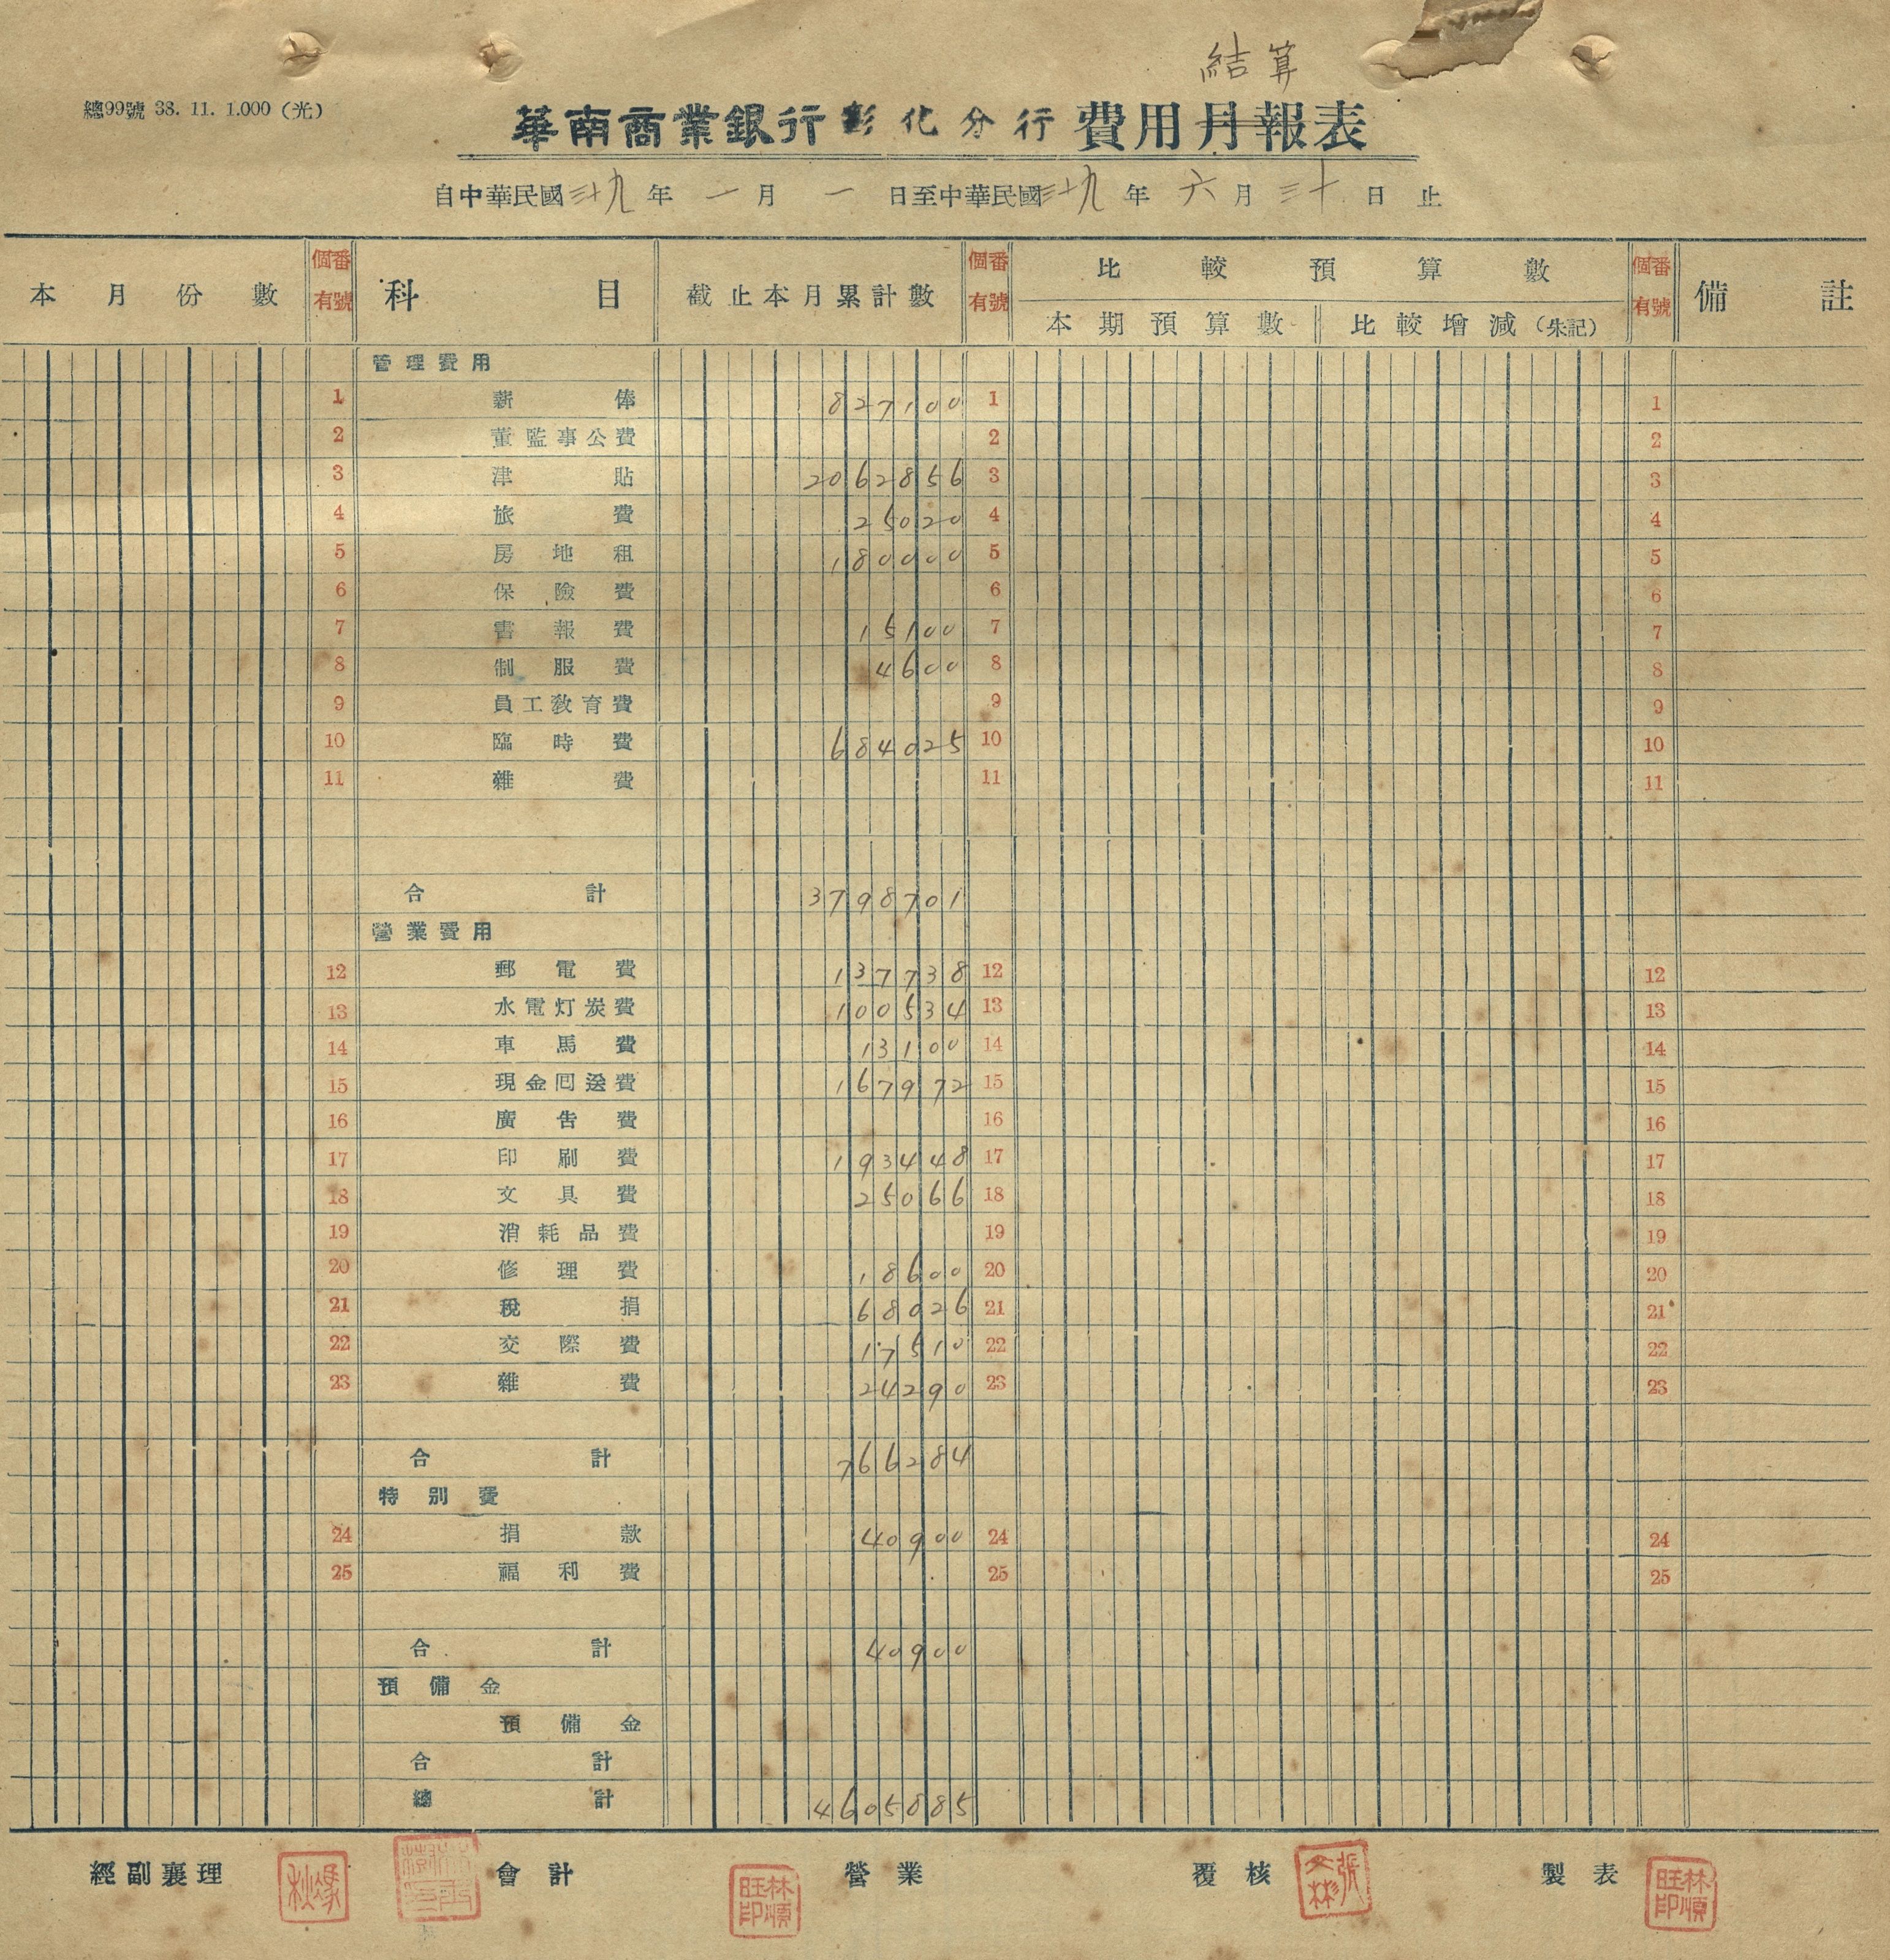 結算
總99號 38. 11. 1.000 (光)
華南商業銀行彰化分行費用月報表
自中華民國三十九年一月一日至中華民國三十九年六月三十日止
本月份數 個有番號 科目 截止本月累計數 個有番號 比較預算數 個有番號 備註
本期預算數 比較增減(朱記)
管理費用
1 薪俸 827100 1 1
2 董監事公費 2 2
3 津貼 2062856 3 3
4 旅費 25020 4 4
5 房地租 180000 5 5
6 保險費 6 6
7 書報費 15100 7 7
8 制服費 4600 8 8
9 員工教育費 9 9
10 臨時費 684025 10 10
11 雜費 11 11
合計 3798701
營業費用
12 郵電費 137738 12 12
13 水電灯炭費 100534 13 13
14 車馬費 13100 14 14
15 現金回送費 167972 15 15
16 廣告費 16 16
17 印刷費 193448 17 17
18 文具費 25066 18 18
19 消耗品費 19 19
20 修理費 18600 20 20
21 稅捐 68026 21 21
22 交際費 17510 22 22
23 雜費 24290 23 23
合計 766284
特別費
24 捐款 40900 24 24
25 福利費 25 25
合計 40900
預備金
預備金
合計
總計 4605885
經副襄理 會計 營業 林順旺印 覆核 張文彬 製表 林順旺印